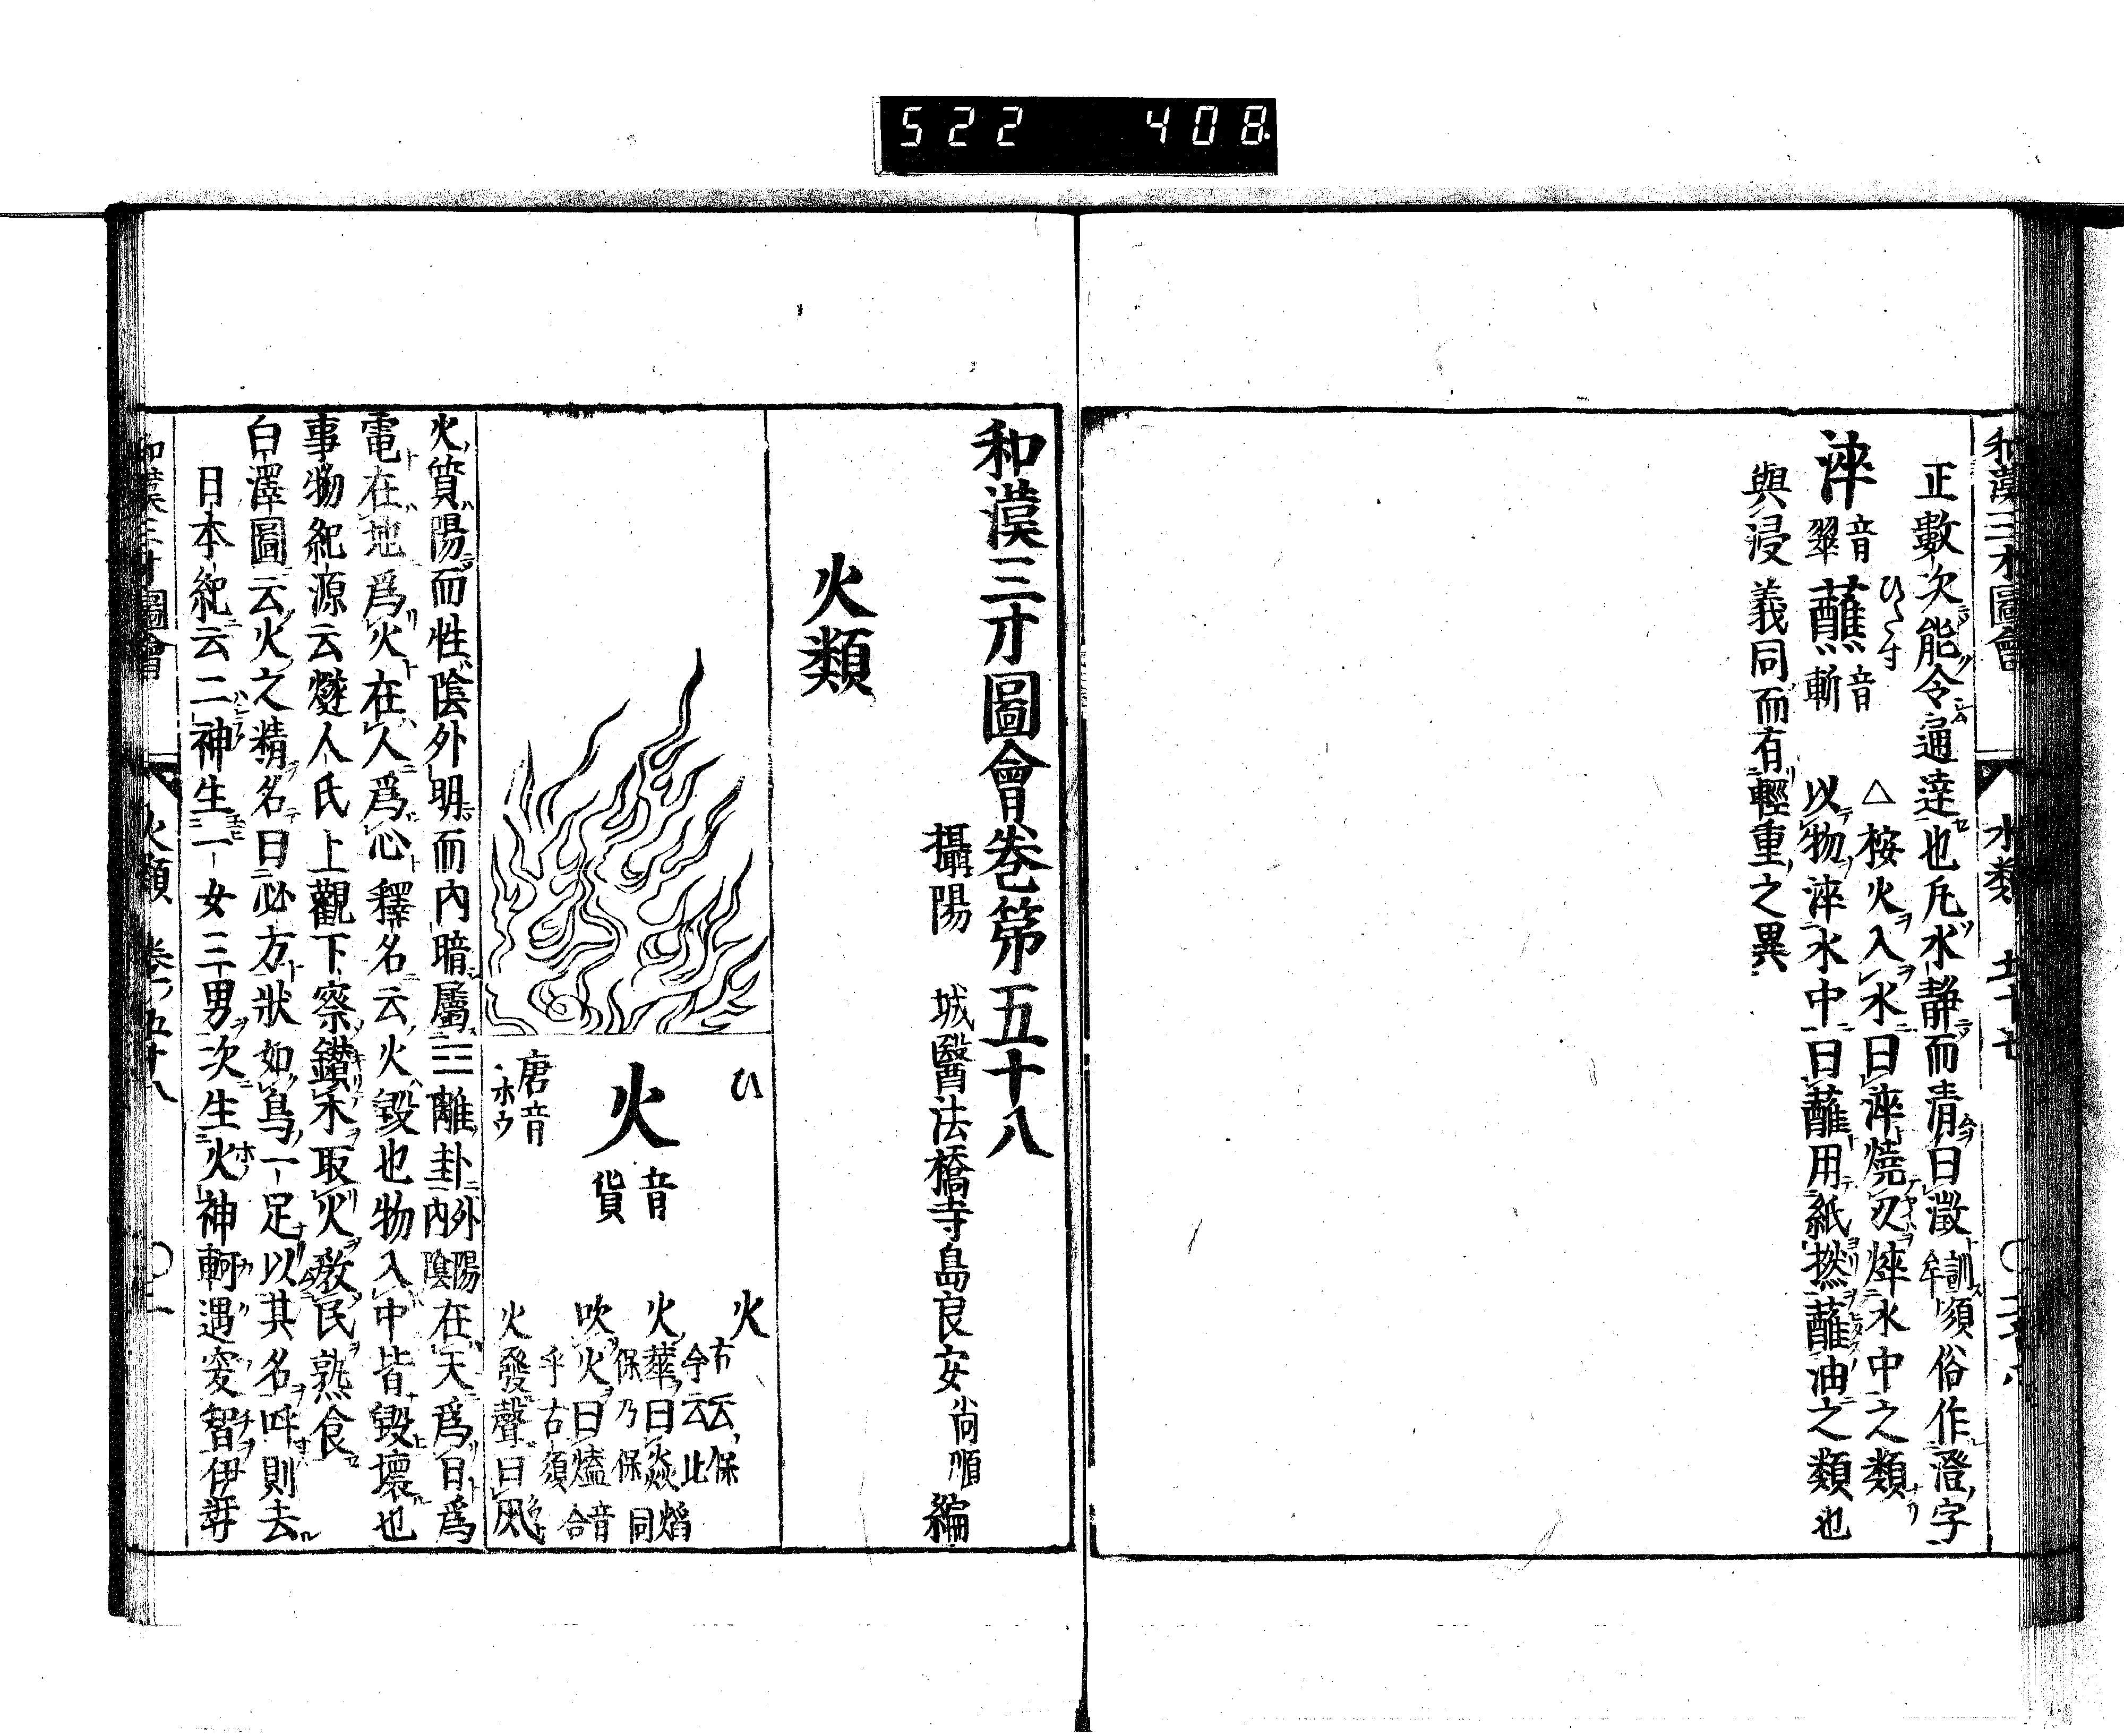 522 408
和漢三才圖會 水類 五十七
正數次能令通達也凡水靜而清曰澂訓須牟俗作澄字
淬音翠 蘸音蘄 ひたす △桉火入水曰淬燒刃焠水中之類
以物淬水中曰蘸用紙撚蘸油之類也
與浸義同而有輕重之異
和漢三才圖會卷第五十八
攝陽 城醫法橋寺島良安尚順編
火類
ひ
火 音貨
唐音 ホウ
火 古云保今云比
火華曰焱焰同 保乃保
吹火曰熆音合 乎古須
火發聲曰
火質陽而性陰外明而內暗屬☲離卦外陽內陰在天爲日爲
電在地爲火在人爲心釋名云火毀也物入中皆毀壞也
事物紀源云燧人氏上觀下察鑚木取火教民熟食
白澤圖云火之精名曰必方狀如鳥一足以其名呼則去
日本紀云二神生一女三男次生火神軻遇突智伊弉
和漢三才圖會 火類 卷ノ五十八 〇一